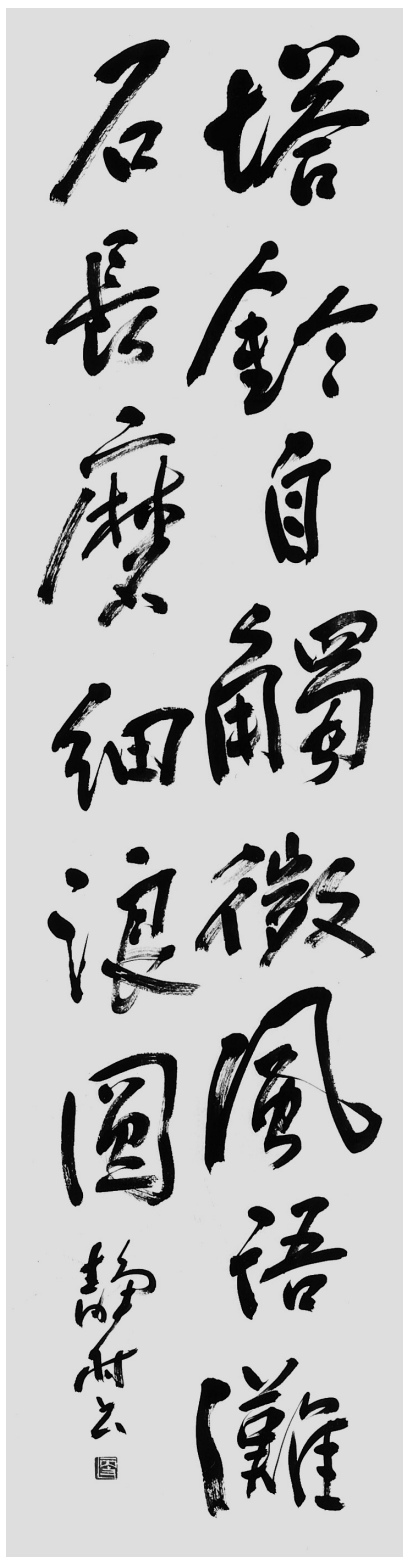 塔鈴自觸微風語灘
石長磨細浪圓
静村書